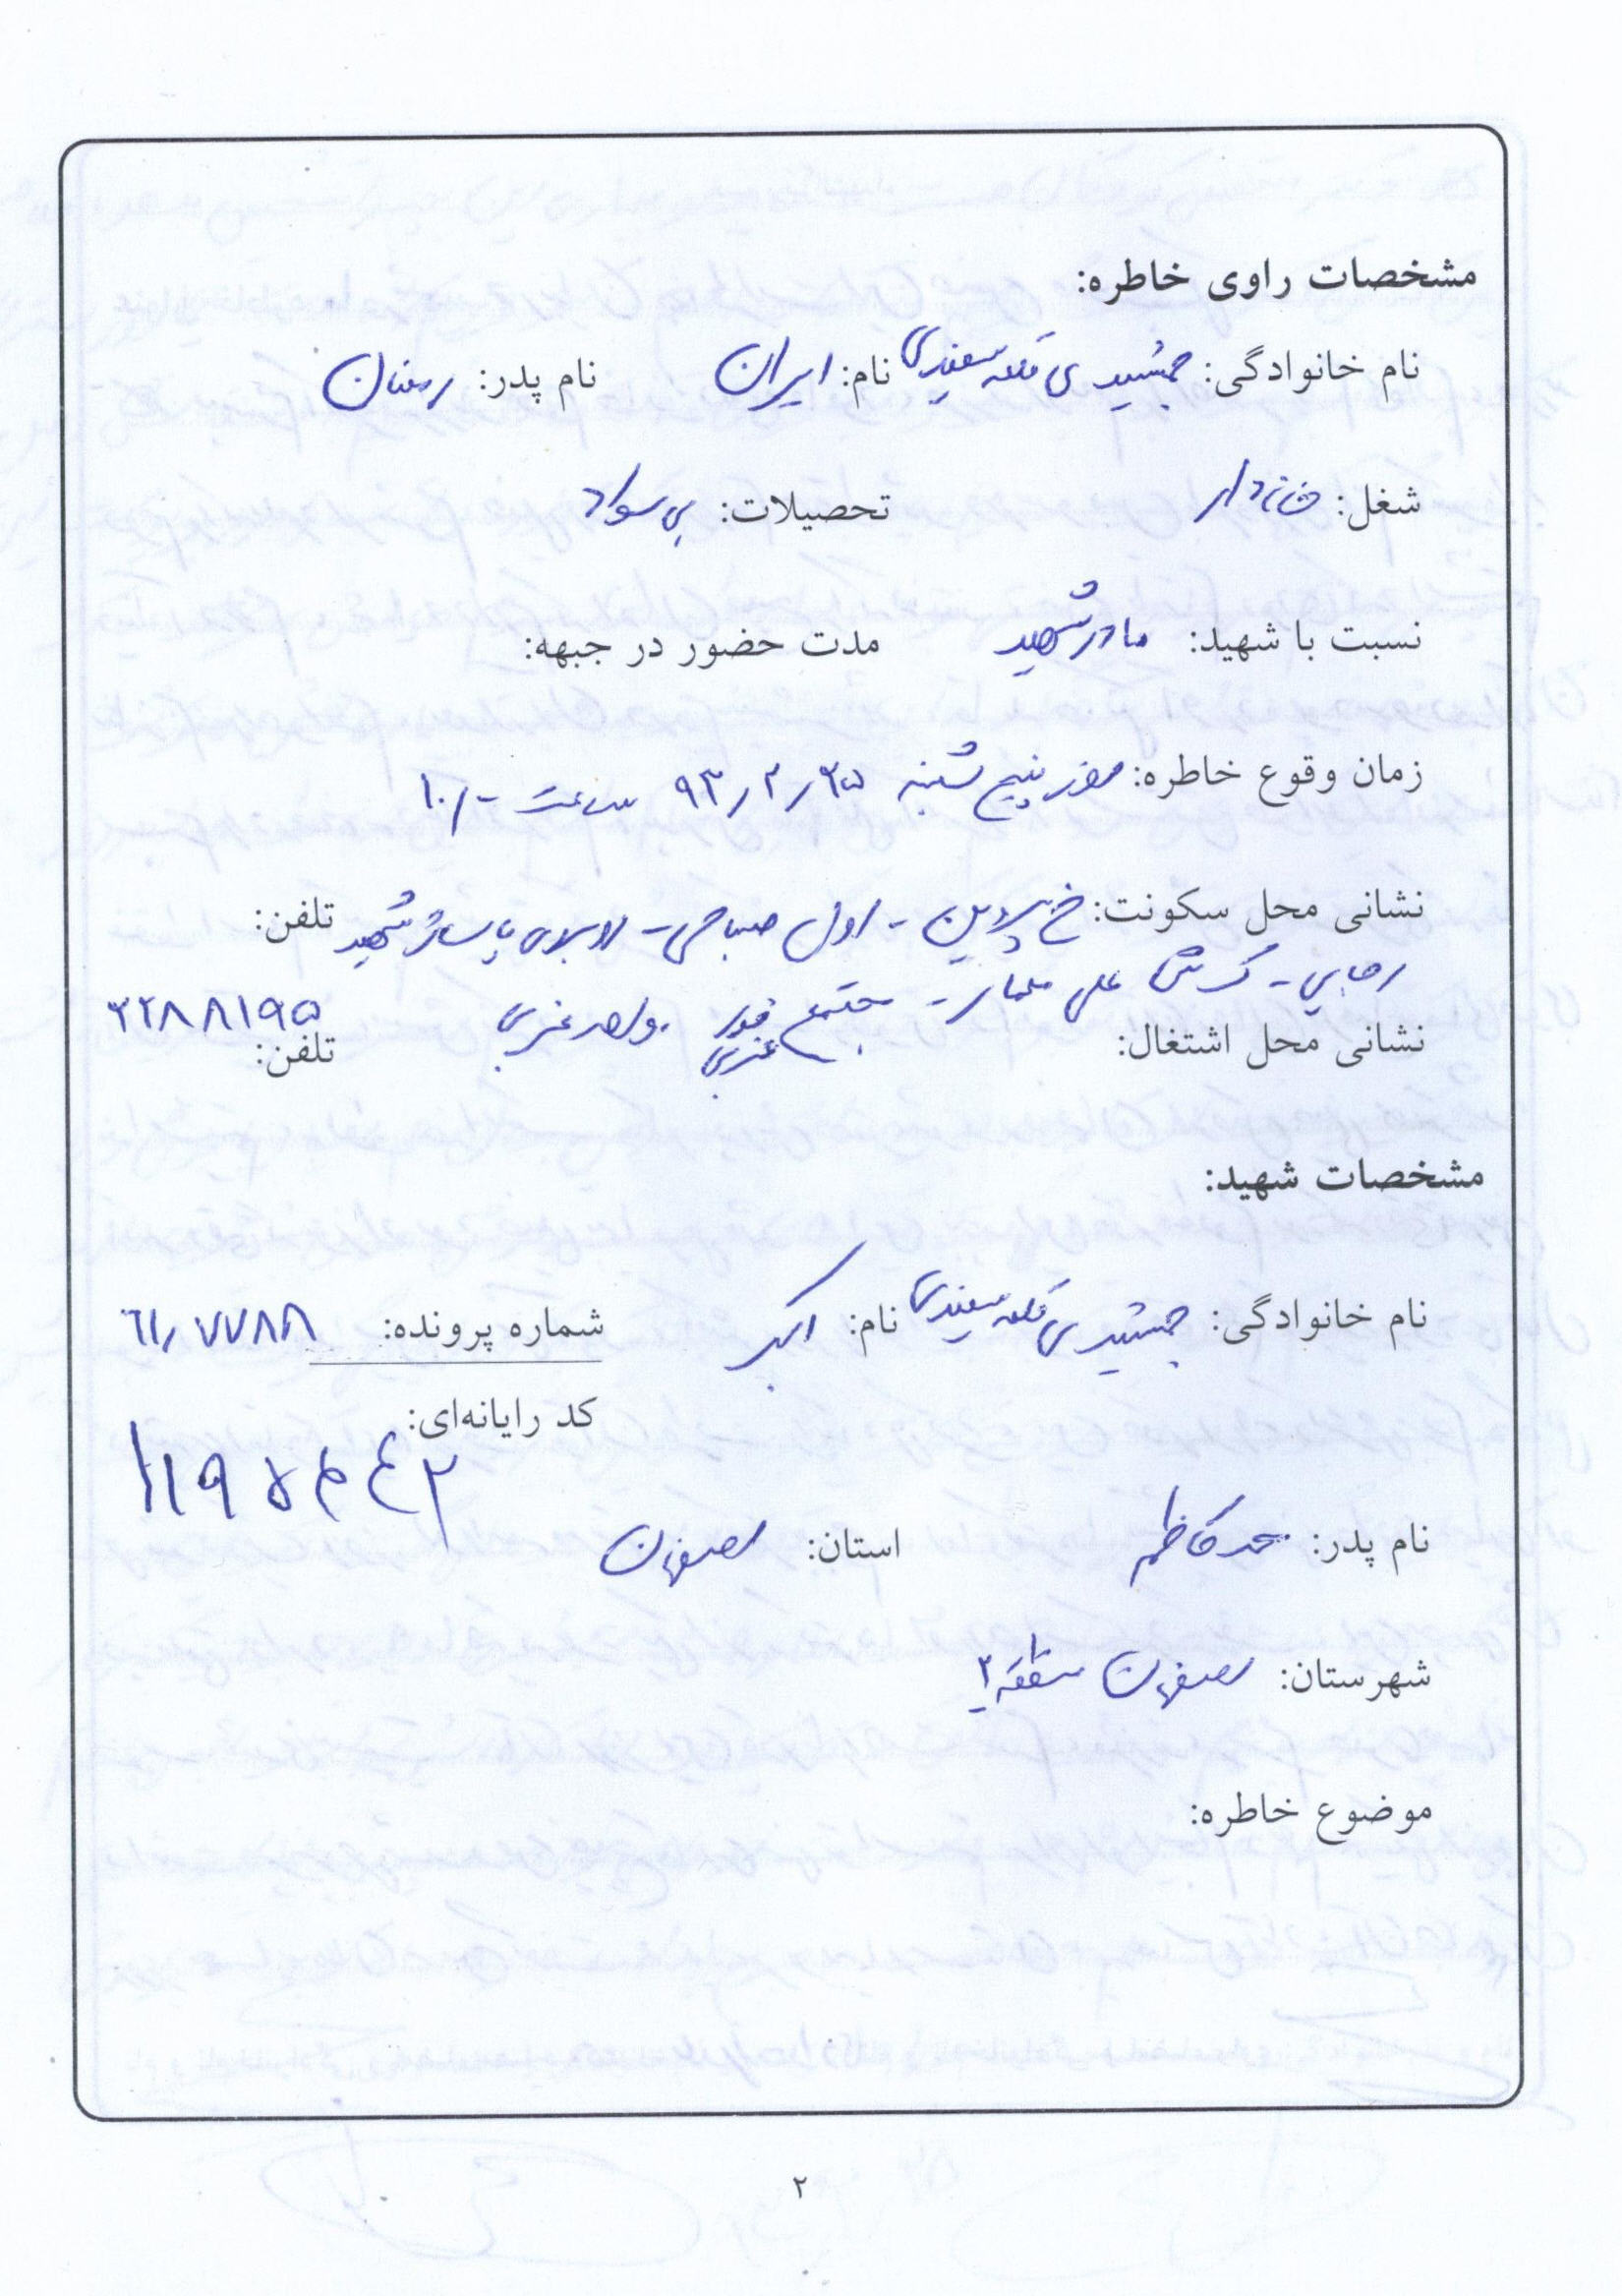 مشخصات راوی خاطره:
نام خانوادگی: جمشیدی قلعه سفیدی نام: ایران نام پدر: رمضان
شغل: خانه دار تحصیلات: بی سواد
نسبت با شهید: مادر شهید مدت حضور در جبهه:
زمان وقوع خاطره: روز پنج شنبه ۹۳٫۲٫۲۵ ساعت ۱۰
نشانی محل سکونت: خ پروین - اول صباحی - روبروی پاساژ شهید تلفن:
رجایی - کوی علی معمار - مجتمع ۳۲۸۸۱۹۵
نشانی محل اشتغال: تلفن:
مشخصات شهید:
نام خانوادگی: جمشیدی قلعه سفیدی نام: اکبر شماره پرونده: ۶۱٫۷۷۸۸
کد رایانه‌ای:
نام پدر: محمد کاظم استان: اصفهان
شهرستان: اصفهان منطقه ۲
موضوع خاطره:
۲